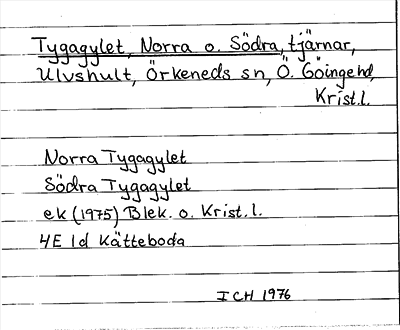 Tygagylet, Norra o. Södra, tjärnar,
Ulvshult, Örkeneds sn, Ö. Göinge hd,
Krist.l.
Norra Tygagylet
Södra Tygagylet
ek (1975) Blek. o. Krist.l.
4E 1d Kätteboda
ICH 1976